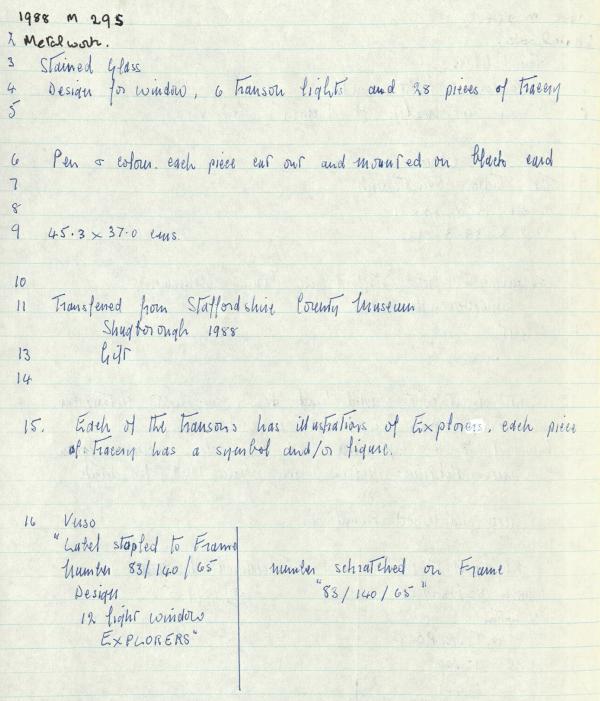 1988 M 295
2 Metalwork.
3 Stained Glass
4 Design for window, 6 Transon lights and 28 pieces of Tracery
5
6 Pen & colour. each piece cut out and mounted on black card
7
8
9 45.3 x 37.0 cms.
10
11 Transferred from Staffordshire County Museum
Shugborough 1988
13 Gift
14
15. Each of the Transons has illustrations of Explorers. each piece
of tracery has a symbol and/or figure.
16 Verso
"Label stapled to Frame
Number 83/140/65
Design
12 light window
EXPLORERS"
number schratched on Frame
"83/140/65"